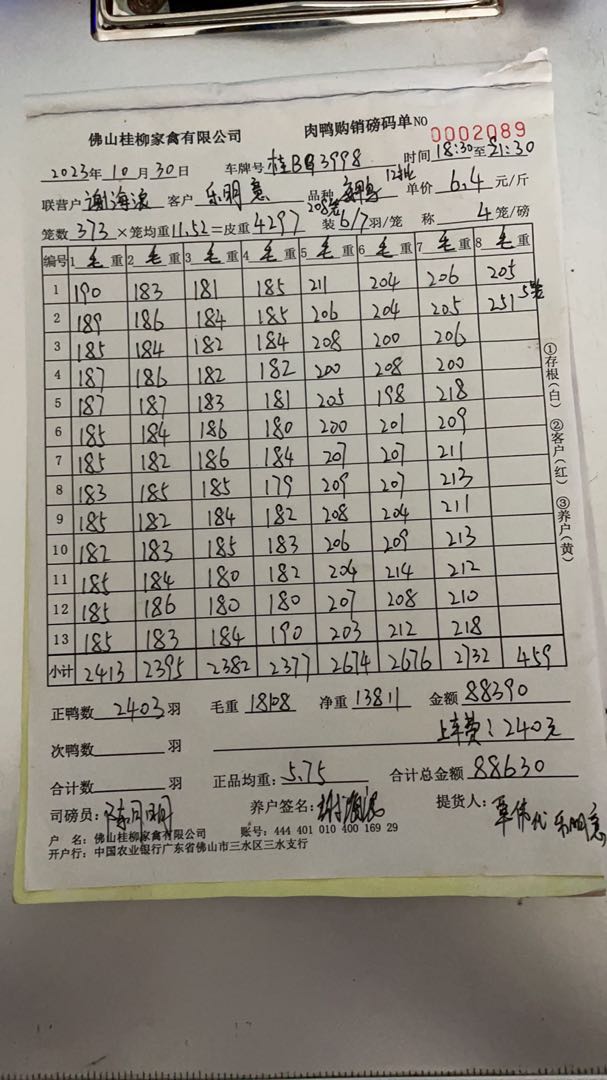 佛山桂柳家禽有限公司 肉鸭购销磅码单 NO 0002089
2023年10月30日 车牌号 桂BG3998 时间 18:30至21:30
联营户 谢海滚 客户 乐明意 品种 12批 单价 6.4 元/斤
208笼
笼数 373 ×笼均重 11.52 =皮重 4297 装 6/7 羽/笼 称 4 笼/磅
编号 1 毛 重 2 毛 重 3 毛 重 4 毛 重 5 毛 重 6 毛 重 7 毛 重 8 毛 重
1 190 183 181 185 211 204 206 205
2 189 186 184 185 206 204 205 251 5笼
3 185 184 182 184 208 200 206
4 187 186 182 182 200 208 200
5 187 187 183 181 205 198 218
6 185 184 186 180 200 201 209
7 185 182 186 184 207 207 211
8 183 185 185 179 209 207 213
9 185 182 184 182 208 204 211
10 182 183 185 183 206 209 213
11 185 184 180 182 204 214 212
12 185 186 180 180 207 208 210
13 185 183 184 190 203 212 218
小计 2413 2395 2382 2377 2674 2676 2732 459
正鸭数 2403 羽 毛重 18108 净重 13811 金额 88390
次鸭数 羽 上车费:240元
合计数 羽 正品均重: 5.75 合计总金额 88630
司磅员: 养户签名: 谢海滚 提货人: 覃伟代 乐明意
户 名: 佛山桂柳家禽有限公司 账号: 444 401 010 400 169 29
开户行: 中国农业银行广东省佛山市三水区三水支行
①存根(白) ②客户(红) ③养户(黄)